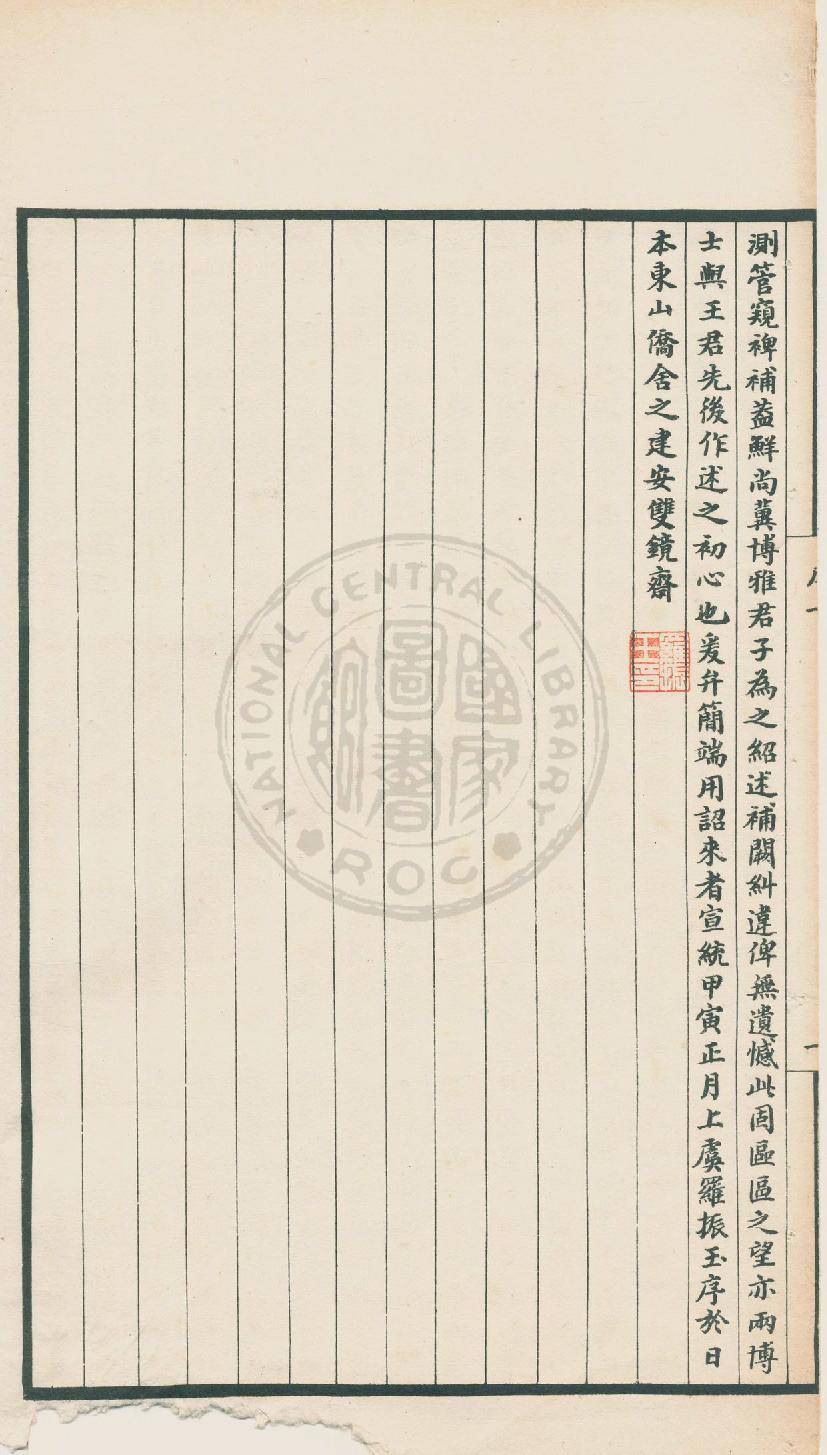 測管窺裨補蓋鮮尚冀博雅君子為之紹述補闕糾違俾無遺憾此固區區之望亦兩博
士與王君先後作述之初心也爰弁簡端用詔來者宣統甲寅正月上虞羅振玉序於日
本東山僑舍之建安雙鏡齋
羅振玉印
NATIONAL CENTRAL LIBRARY
國家圖書館
ROC